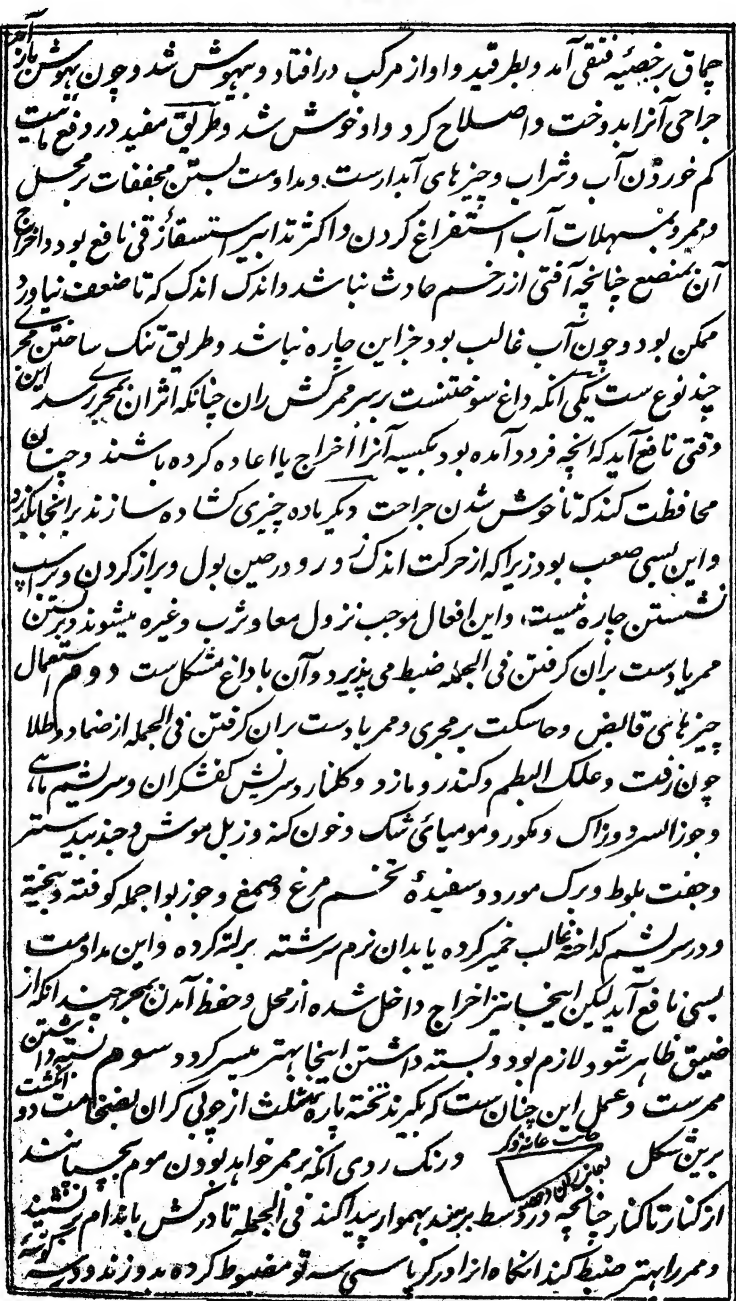 چماق بر خصیه فتقی آمد و بطرقید و او از مرکب درافتاد و بیهوش شد و چون بهوش باز آمد
جراحی آنرا بدوخت و اصلاح کرد و او خوش شد و طریق مفید در دفع مائیت
کم خوردن آب و شراب و چیزهای آبدارست و مداومت بستن مجففات بر محل
و ممر و بمسهلات آب استفراغ کردن و اکثر تدابیر استسقاء زقی نافع بود و اخراج
آن بمبضع چنانچه آفتی از زخم حادث نباشد و اندک اندک که تا ضعف نیاورد
ممکن بود و چون آب غالب بود جز این چاره نباشد و طریق تنک ساختن مجری
چند نوع ست یکی آنکه داغ سوختنست بر سر ممر کش ران چنانکه اثر آن بمجری رسد این
وقتی نافع آید که انچه فرود آمده بود بکیسه آنرا اخراج یا اعاده کرده باشند و چنان
محافظت کند که تا خوش شدن جراحت دیگر باده چیزی کشاده سازند بر انجا نگذرد
و این بسی صعب بود زیرا که از حرکت اندک و در حین بول و براز کردن و بر اسپ
نشستن چاره نیست، و این افعال موجب نزول معا و ثرب و غیره میشوند و بستن
ممر یا دست بران کرفتن فی الجمله ضبط می پذیرد و آن با داغ مشکل ست دوم استعمال
چیزهای قابض و حاسکت بر مجری و ممر یا دست بران کرفتن فی الجمله از ضماد و طلا
چون زفت و علک البطم و کندر و مازو و کلنار و سریش کفشکران و سریشم ماهی
و جوز السرو و زاک و مکور و مومیائی شک و خون کنه و زبل موش و جندبیدستر
و جفت بلوط و برک مورد و سفیدۀ تخم مرغ و صمغ و جوز بوا جمله کوفته و بیخته
و در سریشم کداخته غالب خمیر کرده یا بدان نرم سرشته بر لته کرده و این مداومت
بسی نافع آید لیکن اینجا نیز اخراج داخل شده از محل و حفظ آمدن بمجری چندانکه از
ضیق ظاهر شود لازم بود و بسته داشتن اینجا بهتر میسر کردد سوم بسته داشتن
ممرست و عمل این چنان ست که بکیرند تخته پارۀ مثلث از چوبی کران بضخامت دو انکشت
برین شکل جانب عانه و ذکر بجانب ران و خصیه و رنک روی آنکه بر ممر خواهد بودن موم بچسپانند
از کنار تا کنار چنانچه در وسط بر بیند بهموار پیدا کند فی الجمله تا در کش باندام بر نشیند
و ممر را بهتر ضبط کند آنکاه آنرا در کرپاسی سه تو مضبوط کرده بدوزند و در سه کوشۀ